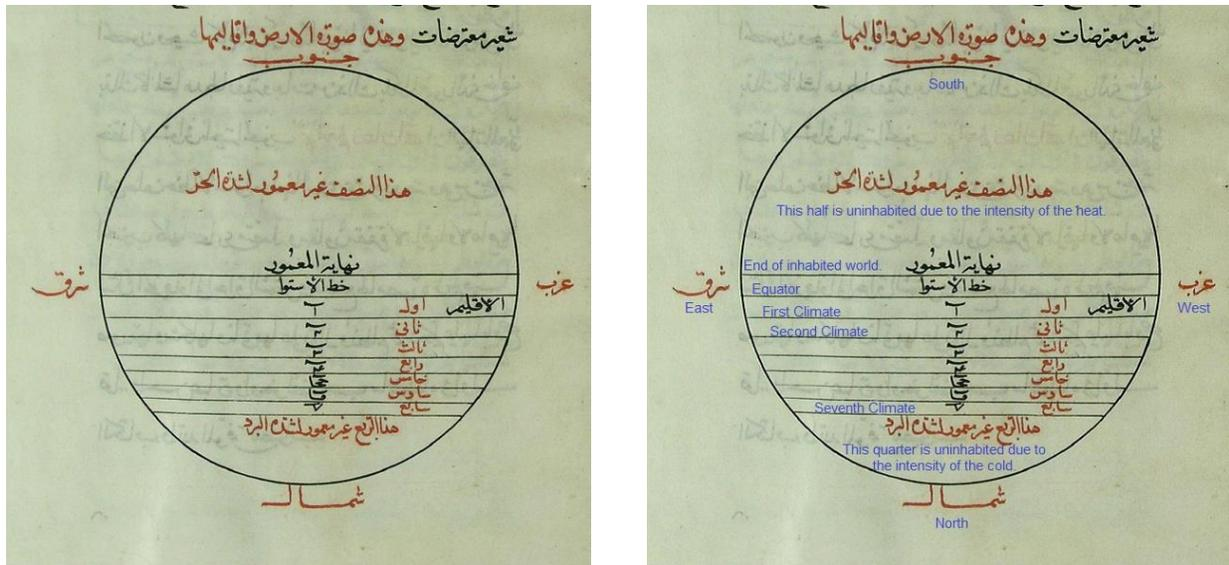 شعير معترضات وهذه صورة الارض واقاليمها
جنوب
هذا النصف غير معمور لشدة الحر
نهاية المعمور
خط الاستوا
غرب
شرق
الاقليم اول
ثاني
ثالث
رابع
خامس
سادس
سابع
هذا الربع غير معمور لشدة البرد
شمال
شعير معترضات وهذه صورة الارض واقاليمها
جنوب
South
هذا النصف غير معمور لشدة الحر
This half is uninhabited due to the intensity of the heat.
نهاية المعمور
End of inhabited world.
خط الاستوا
Equator
غرب
West
شرق
East
الاقليم اول
First Climate
ثاني
Second Climate
ثالث
رابع
خامس
سادس
سابع
Seventh Climate
هذا الربع غير معمور لشدة البرد
This quarter is uninhabited due to
the intensity of the cold.
شمال
North